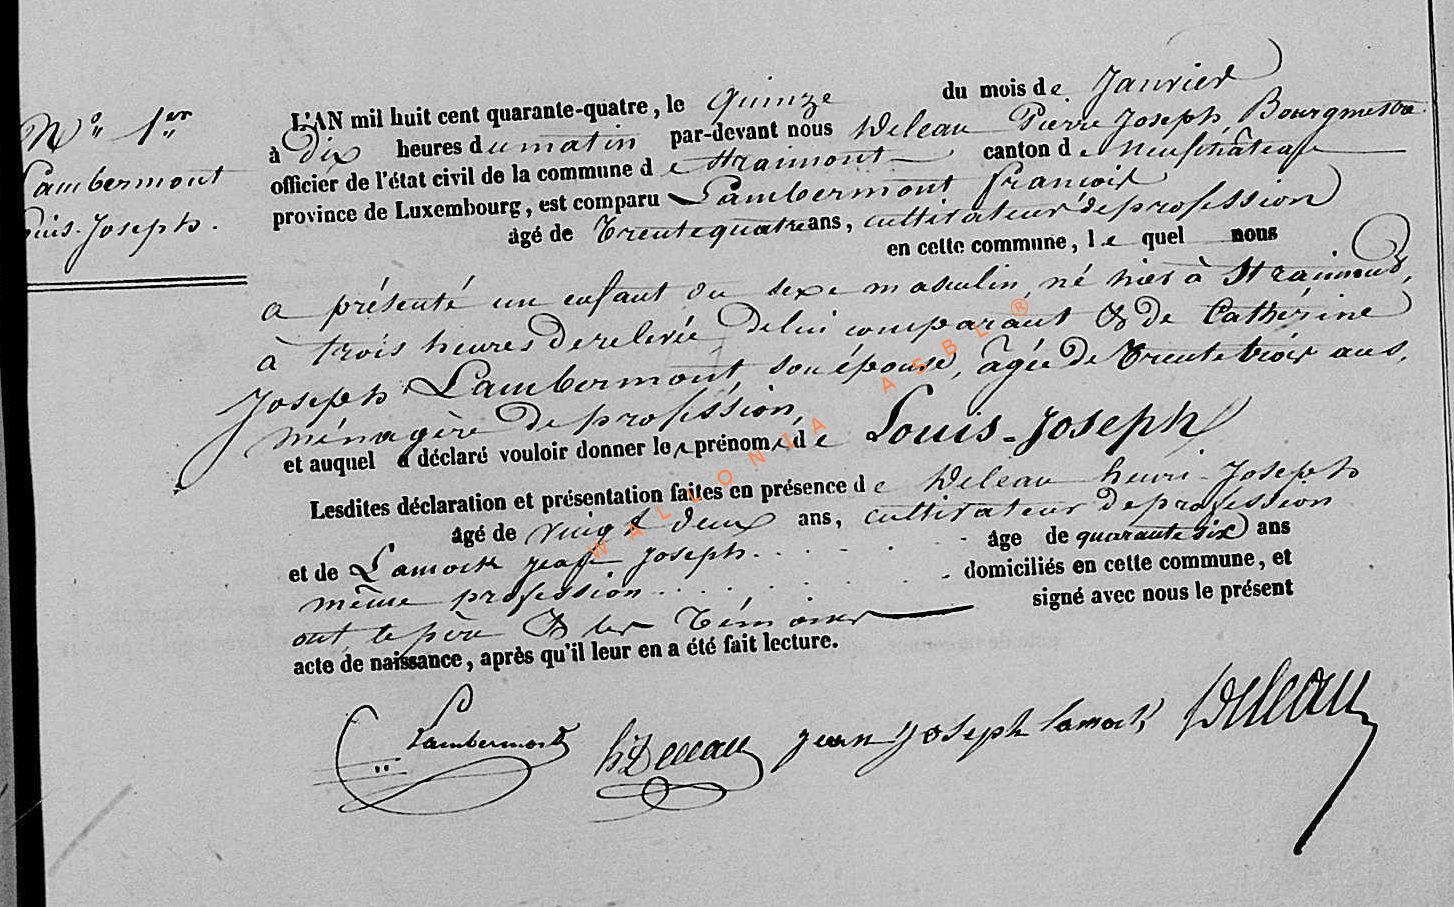 N.° 1.er
Lambermont
Louis-Joseph.
L'AN mil huit cent quarante-quatre, le quinze du mois de Janvier
à Dix heures du matin par-devant nous Deleau Pierre Joseph, Bourgmestre
officier de l'état civil de la commune de Straimont canton de Neufchâteau
province de Luxembourg, est comparu Lambermont françois
âgé de Trente quatre ans, cultivateur de profession
en cette commune, le quel nous
a présenté un enfant du sexe masculin, né hier à Straimont,
à trois heures de relevée, de lui comparant & de Catherine
Joseph Lambermont, son épouse, âgée de Trente trois ans,
ménagère de profession,
et auquel a déclaré vouloir donner les prénoms de Louis-Joseph
Lesdites déclaration et présentation faites en présence de Deleau henri-Joseph
âgé de vingt deux ans, cultivateur de profession
et de Lamock jean joseph âge de quarante six ans
même profession domiciliés en cette commune, et
ont, le père & les Témoins signé avec nous le présent
acte de naissance, après qu'il leur en a été fait lecture.
Lambermont hDeleau jean joseph lamock Deleau
WALLONIA ASBL ®